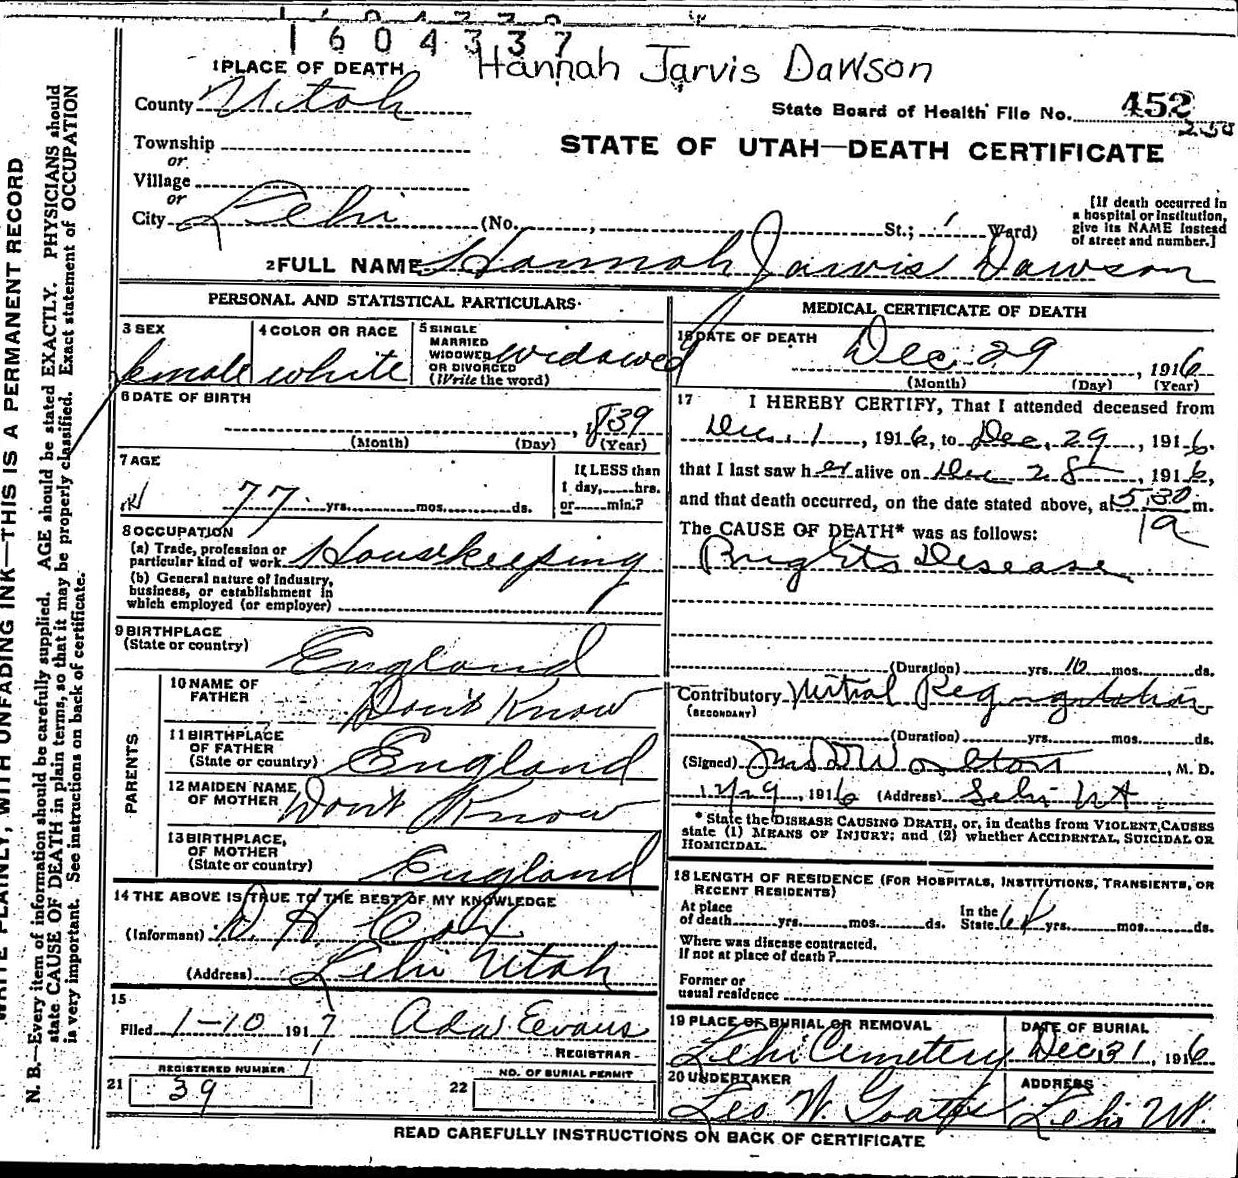 1604337
Hannah Jarvis Dawson
1 PLACE OF DEATH
County Utah
State Board of Health File No. 452
250
Township
or
STATE OF UTAH—DEATH CERTIFICATE
Village
or
City Lehi (No. , St.; 1 Ward)
[If death occurred in
a hospital or institution,
give its NAME instead
of street and number.]
2 FULL NAME Hannah Jarvis Dawson
PERSONAL AND STATISTICAL PARTICULARS
3 SEX
female
4 COLOR OR RACE
white
5 SINGLE
MARRIED
WIDOWED
OR DIVORCED
(Write the word)
widowed
6 DATE OF BIRTH
, 1839
(Month) (Day) (Year)
7 AGE
77 yrs. mos. ds.
If LESS than
1 day, hrs.
or min.?
8 OCCUPATION
(a) Trade, profession or
particular kind of work Housekeeping
(b) General nature of industry,
business, or establishment in
which employed (or employer)
9 BIRTHPLACE
(State or country)
England
PARENTS
10 NAME OF
FATHER
Don't Know
11 BIRTHPLACE
OF FATHER
(State or country)
England
12 MAIDEN NAME
OF MOTHER
Don't Know
13 BIRTHPLACE,
OF MOTHER
(State or country)
England
14 THE ABOVE IS TRUE TO THE BEST OF MY KNOWLEDGE
(Informant) D H Cox
(Address) Lehi Utah
15
Filed 1-10 1917 Ada Evans
REGISTRAR
REGISTERED NUMBER
21 39
NO. OF BURIAL PERMIT
22
MEDICAL CERTIFICATE OF DEATH
16 DATE OF DEATH
Dec 29, 1916
(Month) (Day) (Year)
17 I HEREBY CERTIFY, That I attended deceased from
Dec. 1, 1916, to Dec. 29, 1916.
that I last saw her alive on Dec 28, 1916,
and that death occurred, on the date stated above, at 5.30 m.
a
The CAUSE OF DEATH* was as follows:
Brights Disease
(Duration) yrs. 10 mos. ds.
Contributory Mitral Regurgitation
(SECONDARY)
(Duration) yrs. mos. ds.
(Signed) , M. D.
12/29, 1916 (Address) Lehi UT
* State the DISEASE CAUSING DEATH, or, in deaths from VIOLENT CAUSES
state (1) MEANS OF INJURY; and (2) whether ACCIDENTAL, SUICIDAL OR
HOMICIDAL.
18 LENGTH OF RESIDENCE (FOR HOSPITALS, INSTITUTIONS, TRANSIENTS, OR
RECENT RESIDENTS)
At place
of death yrs. mos. ds.
In the
State yrs. mos. ds.
Where was disease contracted,
If not at place of death?
Former or
usual residence
19 PLACE OF BURIAL OR REMOVAL
Lehi Cemetery
DATE OF BURIAL
Dec 31, 1916
20 UNDERTAKER
Leo W Goates
ADDRESS
Lehi Ut.
READ CAREFULLY INSTRUCTIONS ON BACK OF CERTIFICATE
WRITE PLAINLY, WITH UNFADING INK—THIS IS A PERMANENT RECORD
N. B.—Every item of information should be carefully supplied. AGE should be stated EXACTLY. PHYSICIANS should
state CAUSE OF DEATH in plain terms, so that it may be properly classified. Exact statement of OCCUPATION
is very important. See instructions on back of certificate.